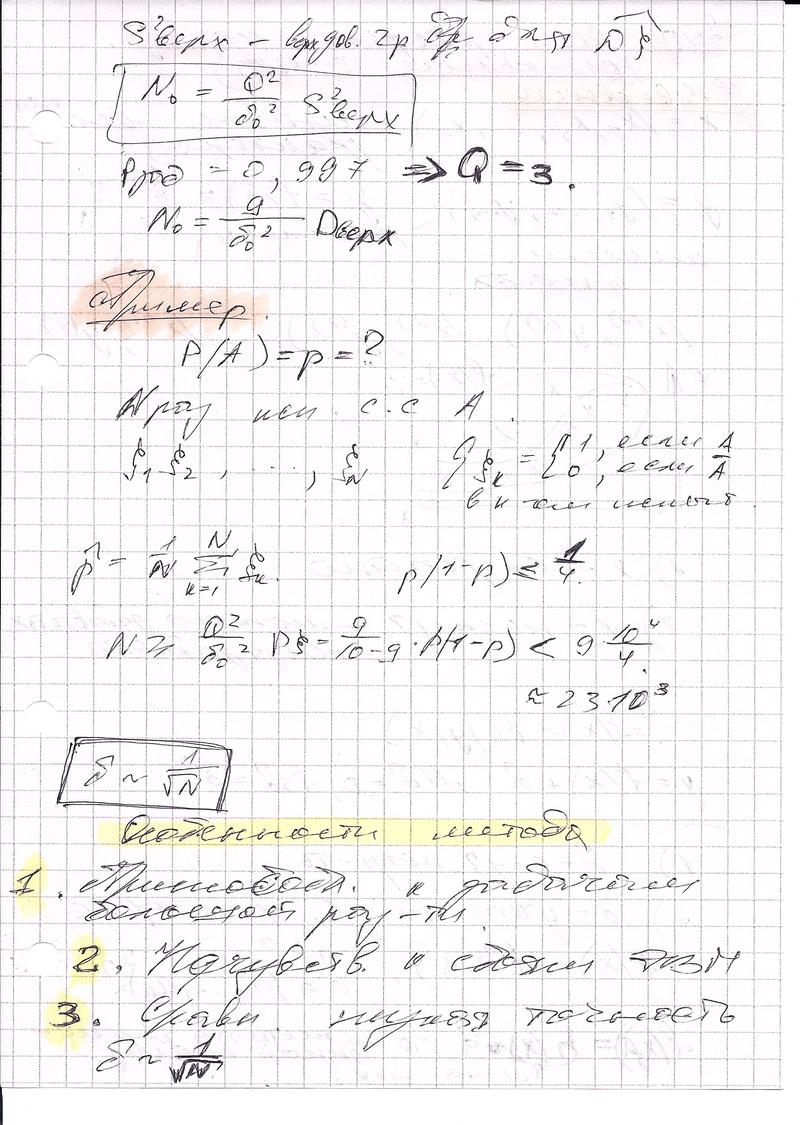 S²верх – верх дов. гр для Dξ
N₀ = Q²/δ₀² S²верх
Pдов = 0,997 => Q = 3.
N₀ = 9/δ₀² Dверх
Пример.
P(A) = p = ?
N раз исп. с.с A.
ξ₁ ξ₂, ..., ξN { ξₖ = { 1, если A
0, если A̅
в к-ом испыт.
p̂ = 1/N Σ(k=1..N) ξₖ. p(1-p) ≤ 1/4.
N ≥ Q²/δ₀² Dξ = 9/10-9 · p(1-p) < 9 · 10⁴/4.
≈ 23·10³
δ ~ 1/√N
Особенности метода
1. Приспособл. к задачам
большой раз-ти
2. Нечувств. к сбоям ЭВМ
3. Сравн. низкая точность
δ ~ 1/√N